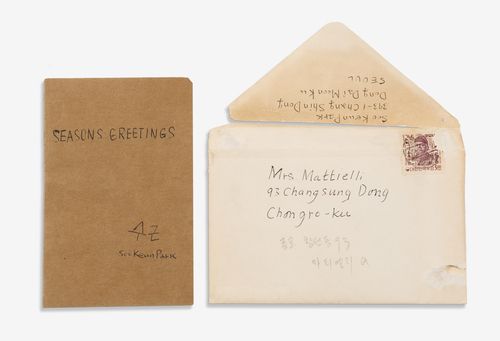 SEASONS GREETINGS
SooKeunPark
Soo Keun Park
393-1 Chang Shin Dong
Dong Dai Moon Ku
SEOUL
Mrs Mattielli
93 Changsung Dong
Chongro-ku
종로 창성동 93
마티엘리